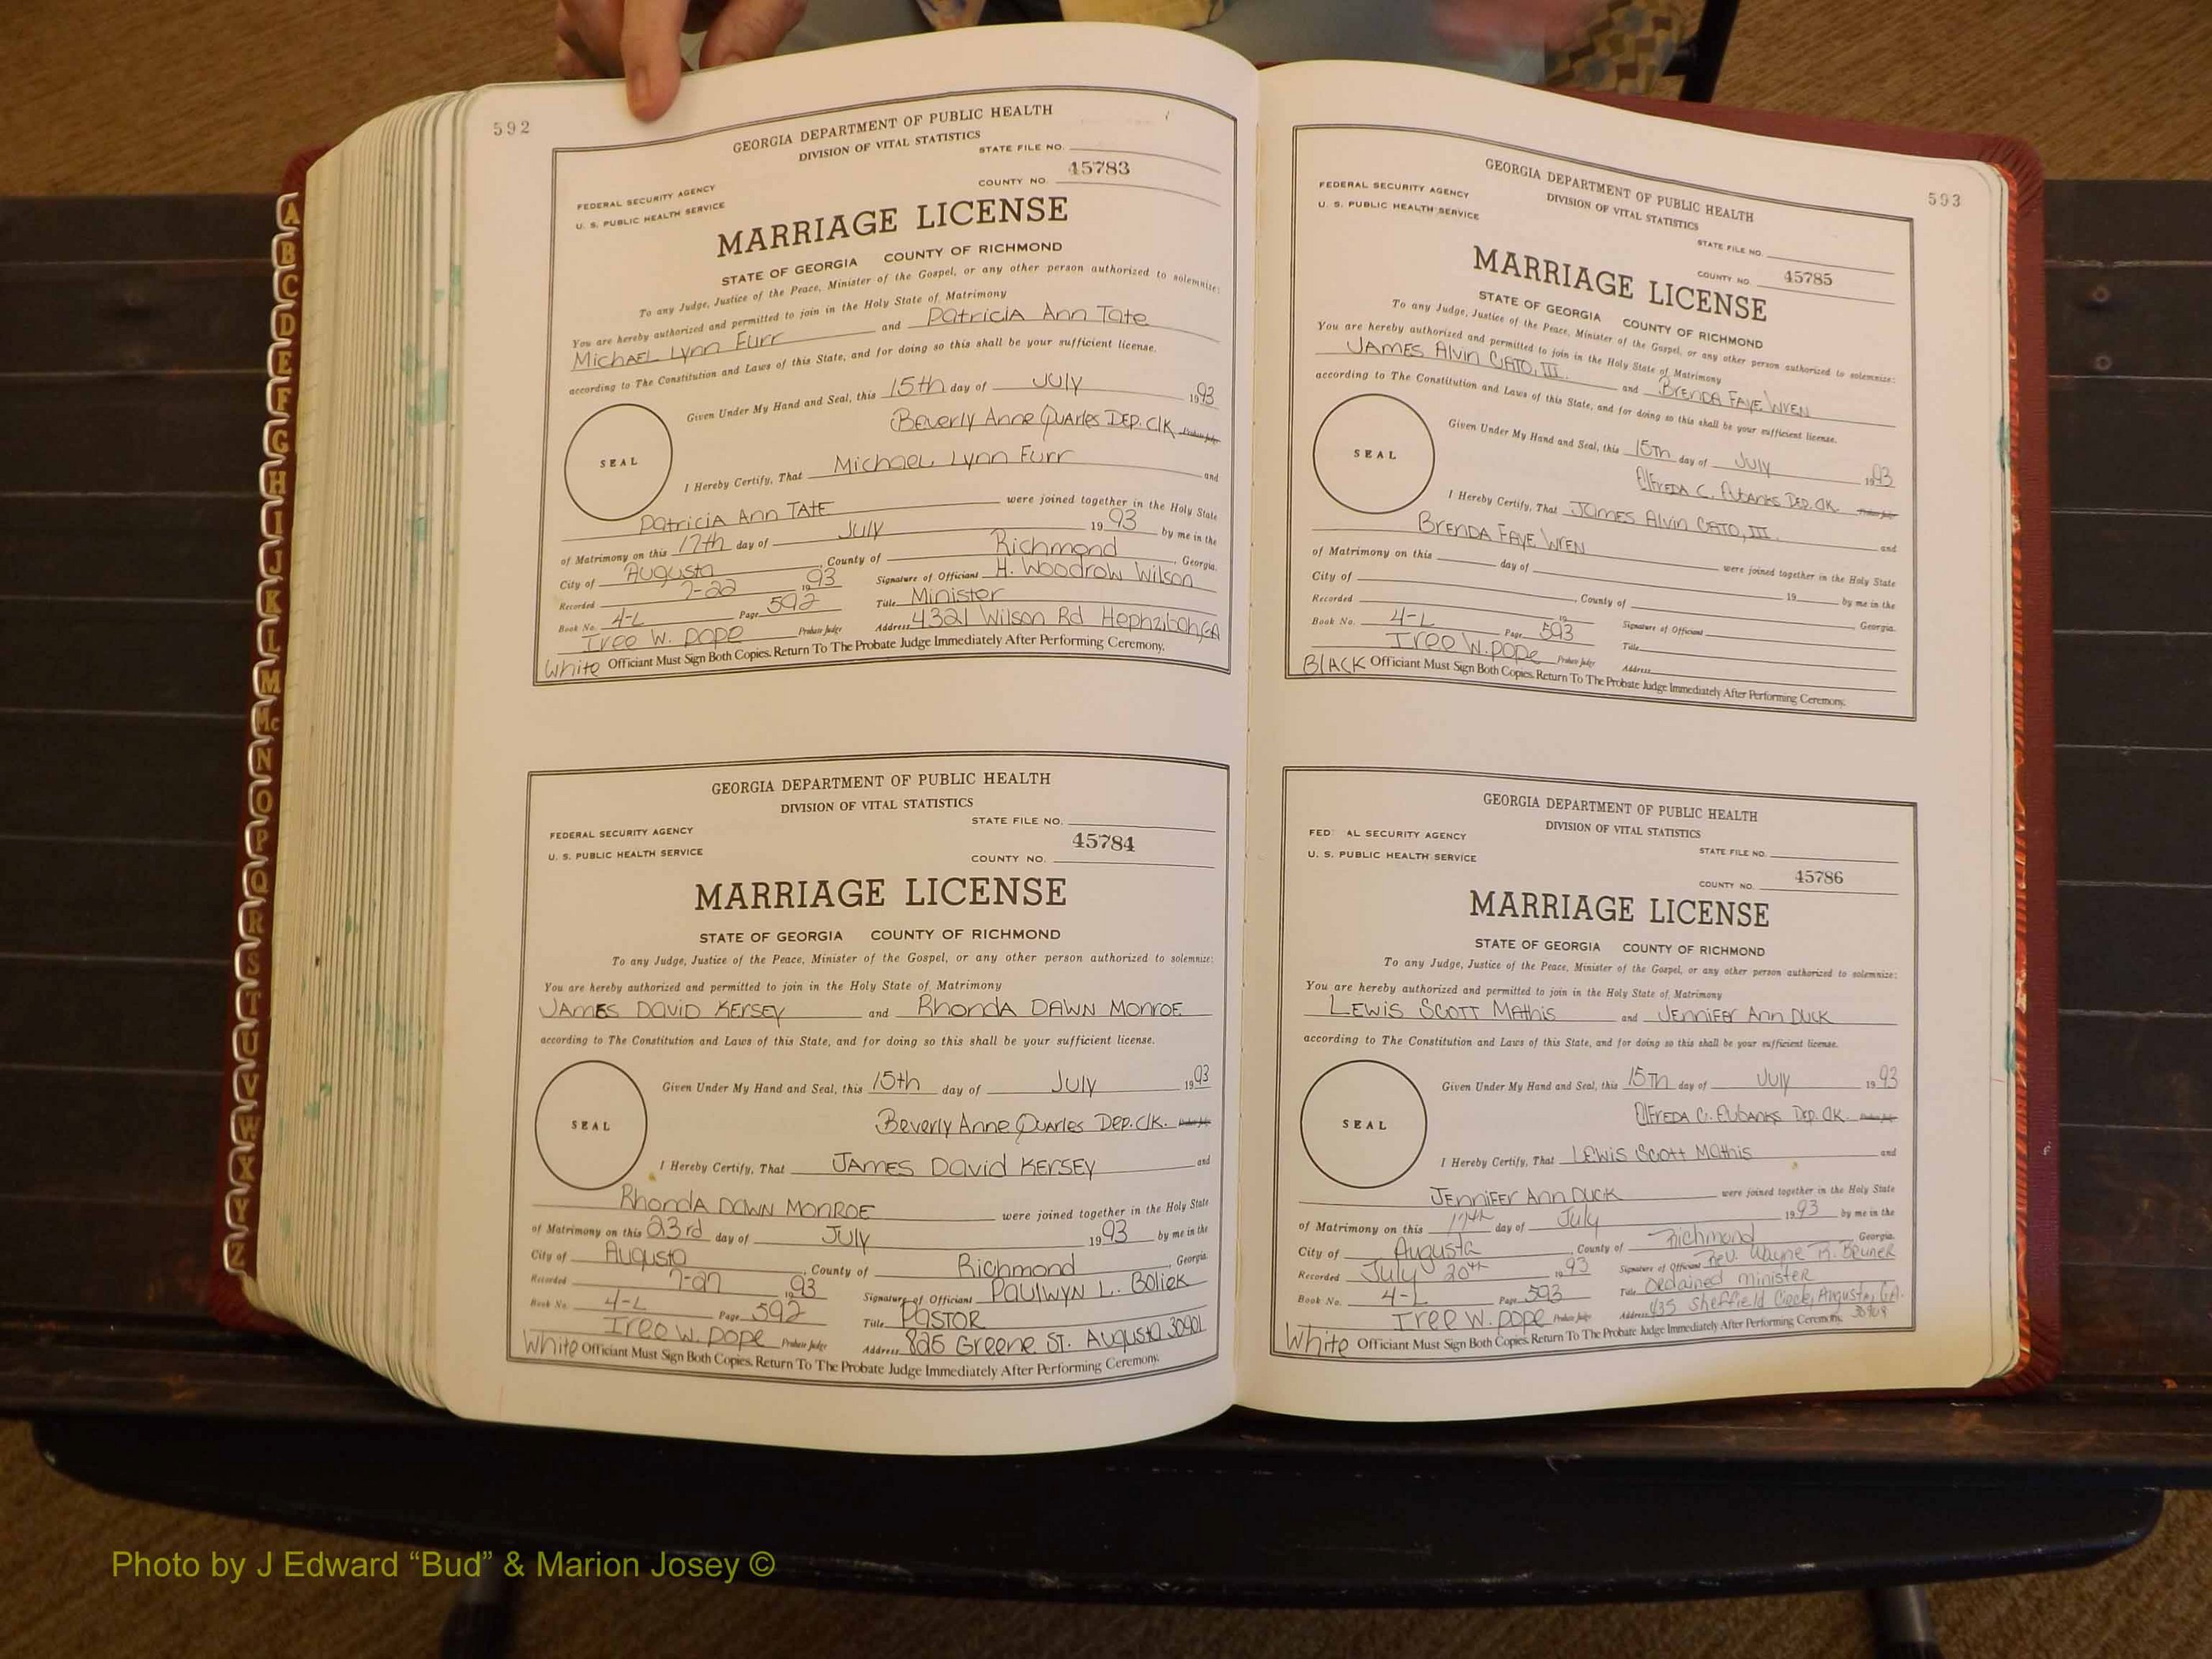 592
GEORGIA DEPARTMENT OF PUBLIC HEALTH
DIVISION OF VITAL STATISTICS
STATE FILE NO.
FEDERAL SECURITY AGENCY
U. S. PUBLIC HEALTH SERVICE
COUNTY NO. 45783
MARRIAGE LICENSE
STATE OF GEORGIA COUNTY OF RICHMOND
To any Judge, Justice of the Peace, Minister of the Gospel, or any other person authorized to solemnize:
You are hereby authorized and permitted to join in the Holy State of Matrimony
Michael Lynn Furr and Patricia Ann Tate
according to The Constitution and Laws of this State, and for doing so this shall be your sufficient license.
Given Under My Hand and Seal, this 15th day of July 1993
Beverly Anne Quarles Dep. Clk Probate Judge
SEAL
I Hereby Certify, That Michael Lynn Furr and
Patricia Ann Tate were joined together in the Holy State
of Matrimony on this 17th day of July 1993 by me in the
City of Augusta, County of Richmond, Georgia.
Recorded 7-22 1993 Signature of Officiant H. Woodrow Wilson
Book No. 4-L Page 592 Title Minister
Iree W. Pope Probate Judge Address 4321 Wilson Rd Hephzibah, GA
White Officiant Must Sign Both Copies. Return To The Probate Judge Immediately After Performing Ceremony.
GEORGIA DEPARTMENT OF PUBLIC HEALTH
DIVISION OF VITAL STATISTICS
STATE FILE NO.
FEDERAL SECURITY AGENCY
U. S. PUBLIC HEALTH SERVICE
COUNTY NO. 45784
MARRIAGE LICENSE
STATE OF GEORGIA COUNTY OF RICHMOND
To any Judge, Justice of the Peace, Minister of the Gospel, or any other person authorized to solemnize:
You are hereby authorized and permitted to join in the Holy State of Matrimony
James David Kersey and Rhonda Dawn Monroe
according to The Constitution and Laws of this State, and for doing so this shall be your sufficient license.
Given Under My Hand and Seal, this 15th day of July 1993
Beverly Anne Quarles Dep. Clk. Probate Judge
SEAL
I Hereby Certify, That James David Kersey and
Rhonda Dawn Monroe were joined together in the Holy State
of Matrimony on this 23rd day of July 1993 by me in the
City of Augusta, County of Richmond, Georgia.
Recorded 7-27 1993 Signature of Officiant Paulwyn L. Boliek
Book No. 4-L Page 592 Title Pastor
Iree W. Pope Probate Judge Address 825 Greene St. Augusta 30901
White Officiant Must Sign Both Copies. Return To The Probate Judge Immediately After Performing Ceremony.
593
GEORGIA DEPARTMENT OF PUBLIC HEALTH
DIVISION OF VITAL STATISTICS
FEDERAL SECURITY AGENCY
U. S. PUBLIC HEALTH SERVICE
STATE FILE NO.
COUNTY NO. 45785
MARRIAGE LICENSE
STATE OF GEORGIA COUNTY OF RICHMOND
To any Judge, Justice of the Peace, Minister of the Gospel, or any other person authorized to solemnize:
You are hereby authorized and permitted to join in the Holy State of Matrimony
James Alvin Cato, III. and Brenda Faye Wren
according to The Constitution and Laws of this State, and for doing so this shall be your sufficient license.
Given Under My Hand and Seal, this 15th day of July 1993
Elfreda C. Eubanks Dep. Clk. Probate Judge
SEAL
I Hereby Certify, That James Alvin Cato, III. and
Brenda Faye Wren were joined together in the Holy State
of Matrimony on this day of 19 by me in the
City of , County of Georgia.
Recorded 19 Signature of Officiant
Book No. 4-L Page 593 Title
Iree W. Pope Probate Judge Address
BLACK Officiant Must Sign Both Copies. Return To The Probate Judge Immediately After Performing Ceremony.
GEORGIA DEPARTMENT OF PUBLIC HEALTH
DIVISION OF VITAL STATISTICS
FED AL SECURITY AGENCY
U. S. PUBLIC HEALTH SERVICE
STATE FILE NO.
COUNTY NO. 45786
MARRIAGE LICENSE
STATE OF GEORGIA COUNTY OF RICHMOND
To any Judge, Justice of the Peace, Minister of the Gospel, or any other person authorized to solemnize:
You are hereby authorized and permitted to join in the Holy State of Matrimony
Lewis Scott Mathis and Jennifer Ann Duck
according to The Constitution and Laws of this State, and for doing so this shall be your sufficient license.
Given Under My Hand and Seal, this 15th day of July 1993
Elfreda C. Eubanks Dep. Clk. Probate Judge
SEAL
I Hereby Certify, That Lewis Scott Mathis and
Jennifer Ann Duck were joined together in the Holy State
of Matrimony on this 17th day of July 1993 by me in the
City of Augusta, County of Richmond Georgia.
Recorded July 20th 1993 Signature of Officiant Rev. Wayne R. Bruner
Book No. 4-L Page 593 Title Ordained minister
Iree W. Pope Probate Judge Address 435 Sheffield Circle, Augusta, GA. 30909
White Officiant Must Sign Both Copies. Return To The Probate Judge Immediately After Performing Ceremony.
A
B
C
D
E
F
G
H
I
J
K
L
M
Mc
N
O
P
Q
R
S
T
U
V
W
X
Y
Z
Photo by J Edward “Bud” & Marion Josey ©